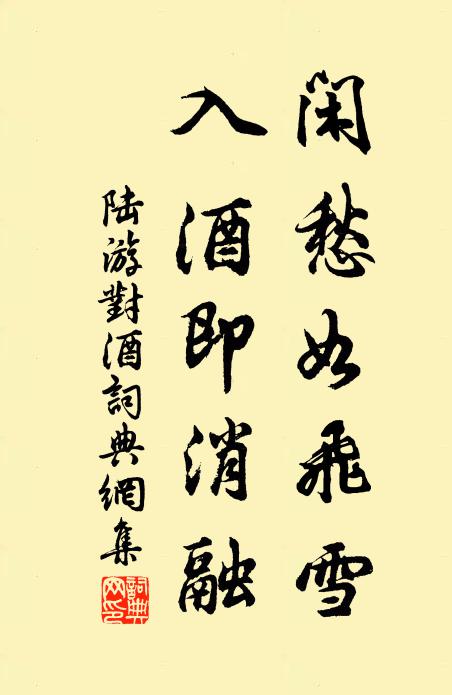 闲愁如飛雪
入酒即消融
陆游對酒詞典網集
詞典网印